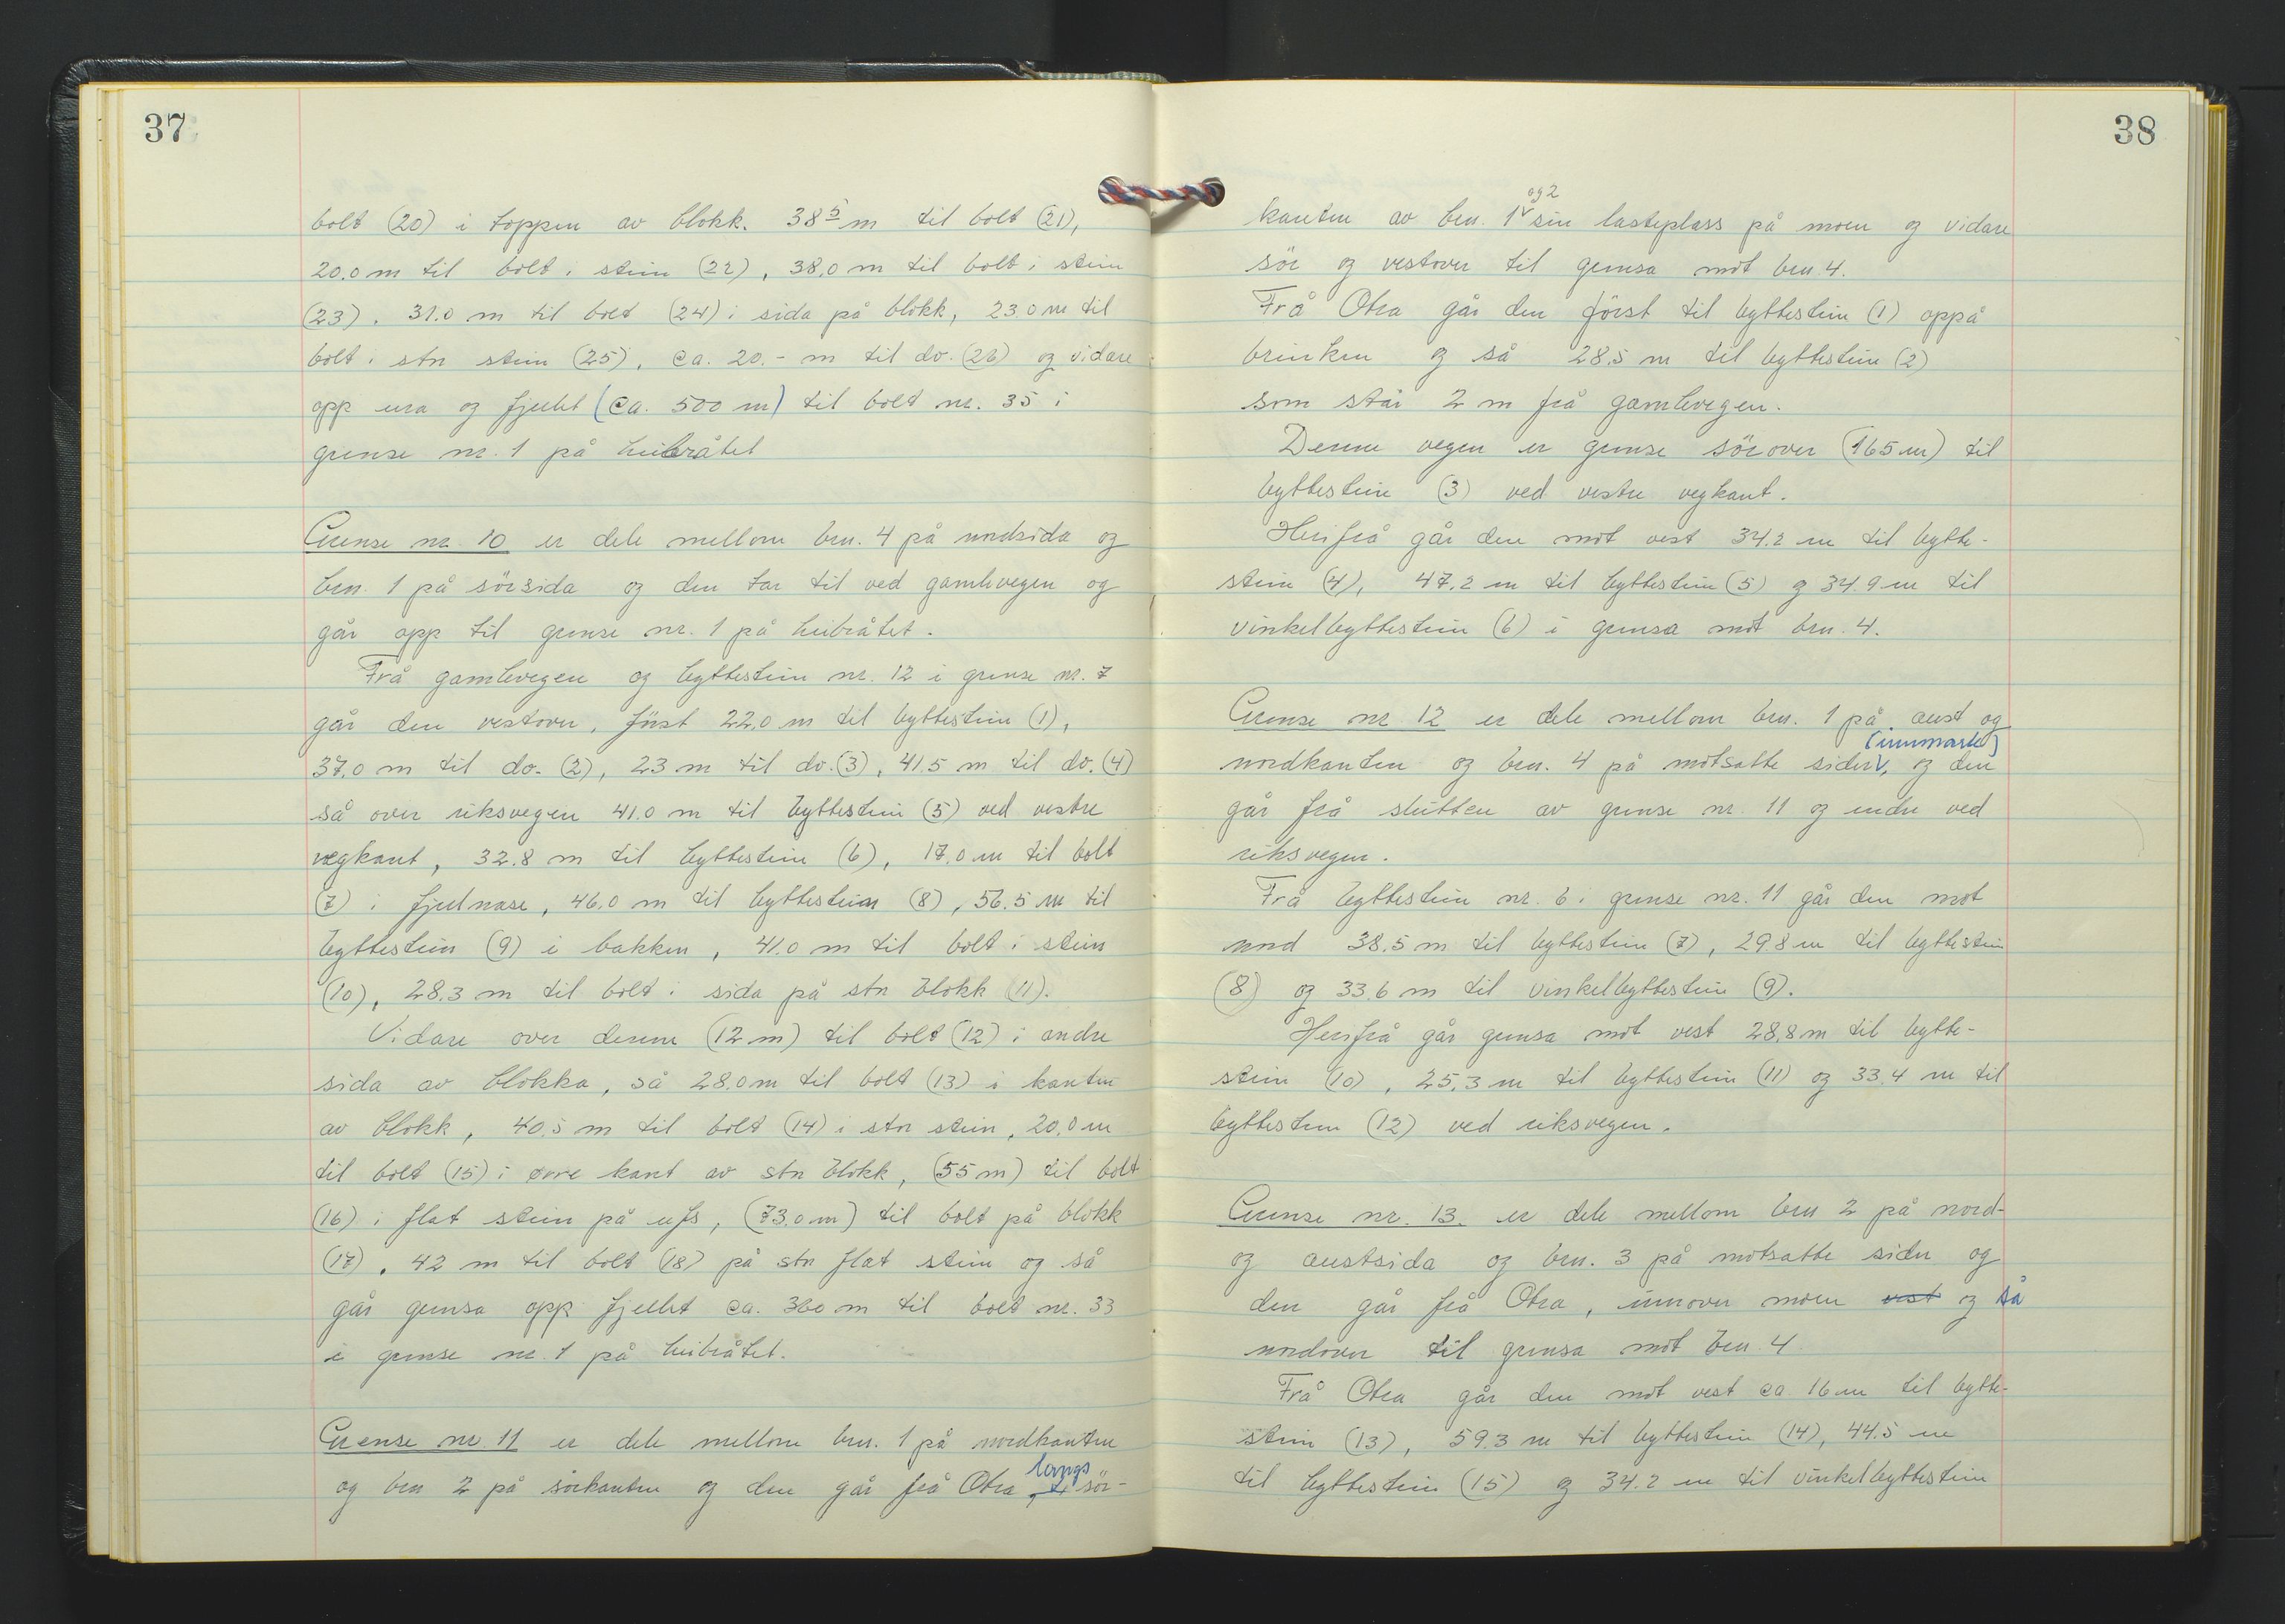 37
bolt (20) i toppen av blokk. 38⁵ m til bolt (21),
20.0 m til bolt i stein (22), 38,0 m til bolt i stein
(23). 31.0 m til bolt (24) i sida på blokk, 23.0 m til
bolt i stor stein (25), ca. 20.- m til do. (26) og vidare
opp ura og fjellet (ca. 500 m) til bolt nr. 35 i
grense nr. 1 på heibråtet
Grense nr. 10 er dele mellom bnr. 4 på nordsida og
bnr. 1 på sörsida og den tar til ved gamlevegen og
går opp til grense nr. 1 på heibråtet.
Frå gamlevegen og byttestein nr. 12 i grense nr. 7
går den vestover, först 22,0 m til byttestein (1),
37,0 m til do. (2), 23 m til do. (3), 41.5 m til do. (4)
så over riksvegen 41.0 m til byttestein (5) ved vestre
vegkant, 32.8 m til byttestein (6), 17.0 m til bolt
(7) i fjellnase, 46.0 m til byttestein (8), 56.5 m til
byttestein (9) i bakken, 41.0 m til bolt i stein
(10), 28.3 m til bolt i sida på stor blokk (11).
Vidare over denne (12 m) til bolt (12) i andre
sida av blokka, så 28.0 m til bolt (13) i kanten
av blokk, 40.5 m til bolt (14) i stor stein, 20.0 m
til bolt (15) i övre kant av stor blokk, (55 m) til bolt
(16) i flat stein på ufs, (73.0 m) til bolt på blokk
(17), 42 m til bolt (18) på stor flat stein og så
går grensa opp fjellet ca. 360 m til bolt nr. 33
i grense nr. 1 på heibråtet.
Grense nr. 11 er dele mellom bnr. 1 på nordkanten
og bnr 2 på sörkanten og den går frå Otra, langs sör-
38
kanten av bnr. 1 og 2 sin lasteplass på moen og vidare
sör og vestover til grensa mot bnr. 4.
Frå Otra går den först til byttestein (1) oppå
brinken og så 28.5 m til byttestein (2)
som står 2 m frå gamlevegen.
Denne vegen er grense sörover (165 m) til
byttestein (3) ved vestre vegkant.
Herifrå går den mot vest 34.2 m til bytte-
stein (4), 47.2 m til byttestein (5) og 34.9 m til
vinkelbyttestein (6) i grensa mot bnr. 4.
Grense nr. 12 er dele mellom bnr. 1 på aust og
nordkanten og bnr. 4 på motsatte sider (innmark), og den
går frå slutten av grense nr. 11 og endar ved
riksvegen.
Frå byttestein nr. 6 i grense nr. 11 går den mot
nord 38.5 m til byttestein (7), 29.8 m til byttestein
(8) og 33.6 m til vinkelbyttestein (9).
Herifrå går grensa mot vest 28,8 m til bytte-
stein (10), 25,3 m til byttestein (11) og 33.4 m til
byttestein (12) ved riksvegen.
Grense nr. 13. er dele mellom bnr 2 på nord-
og austsida og bnr. 3 på motsatte sider og
den går frå Otra, innover moen vest og så
nordover til grensa mot bnr. 4
Frå Otra går den mot vest ca 16 m til bytte-
stein (13), 59.3 m til byttestein (14), 44.5 m
til byttestein (15) og 34.2 m til vinkelbyttestein